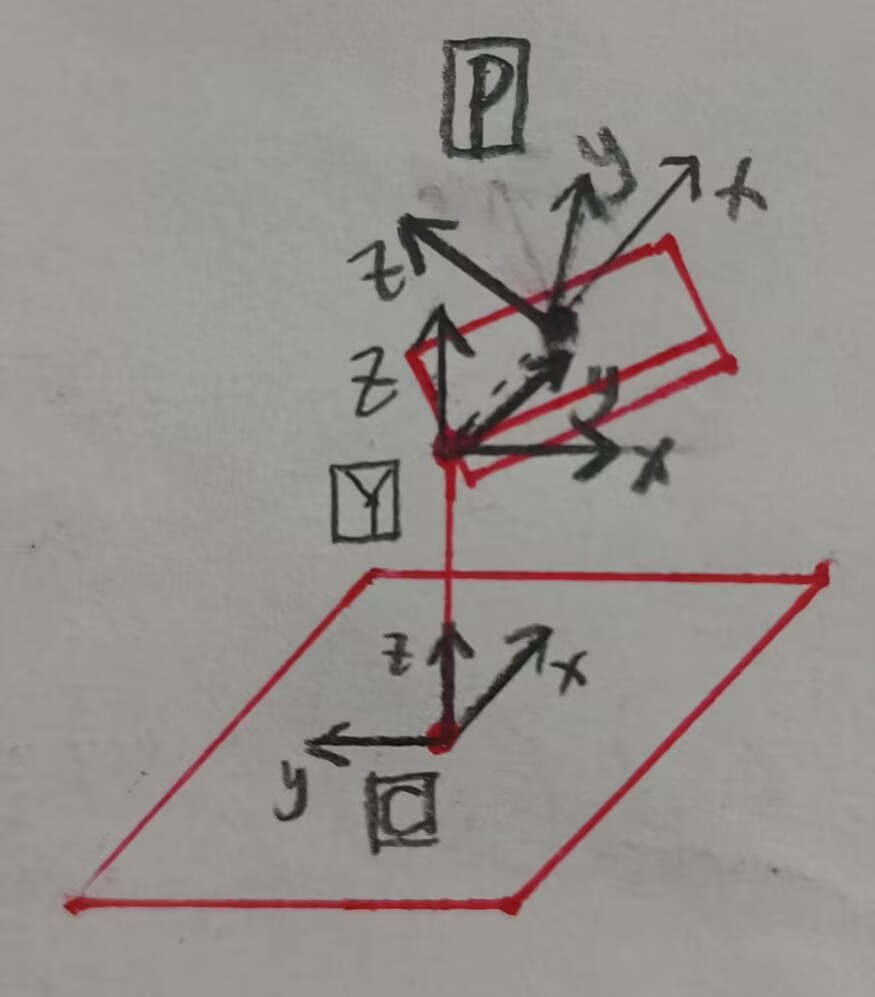 P
y
x
z
z
y
x
Y
z
x
y
C